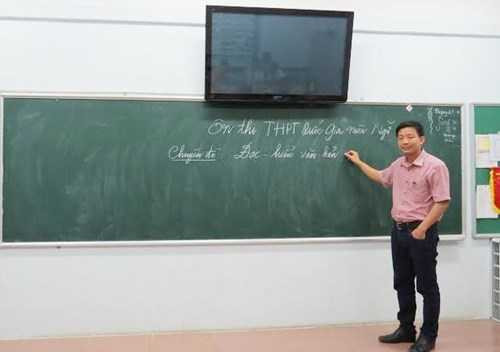 Ôn thi THPT Quốc Gia môn Ngữ
Chuyên đề Đọc - hiểu văn bản